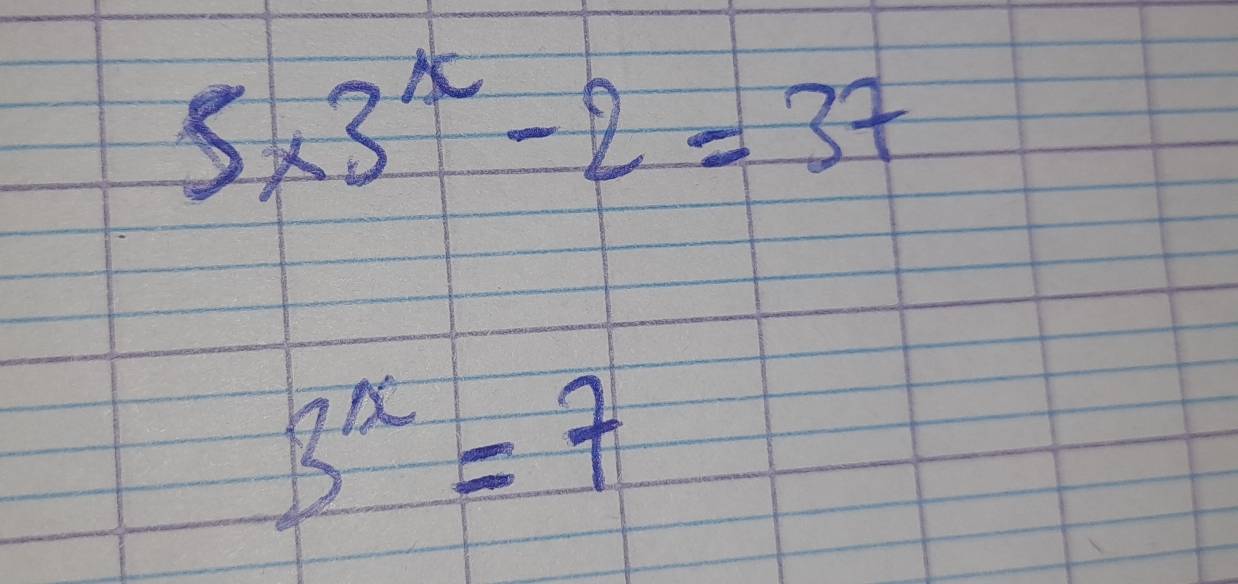 5 × 3^x - 2 = 37
3^x = 7